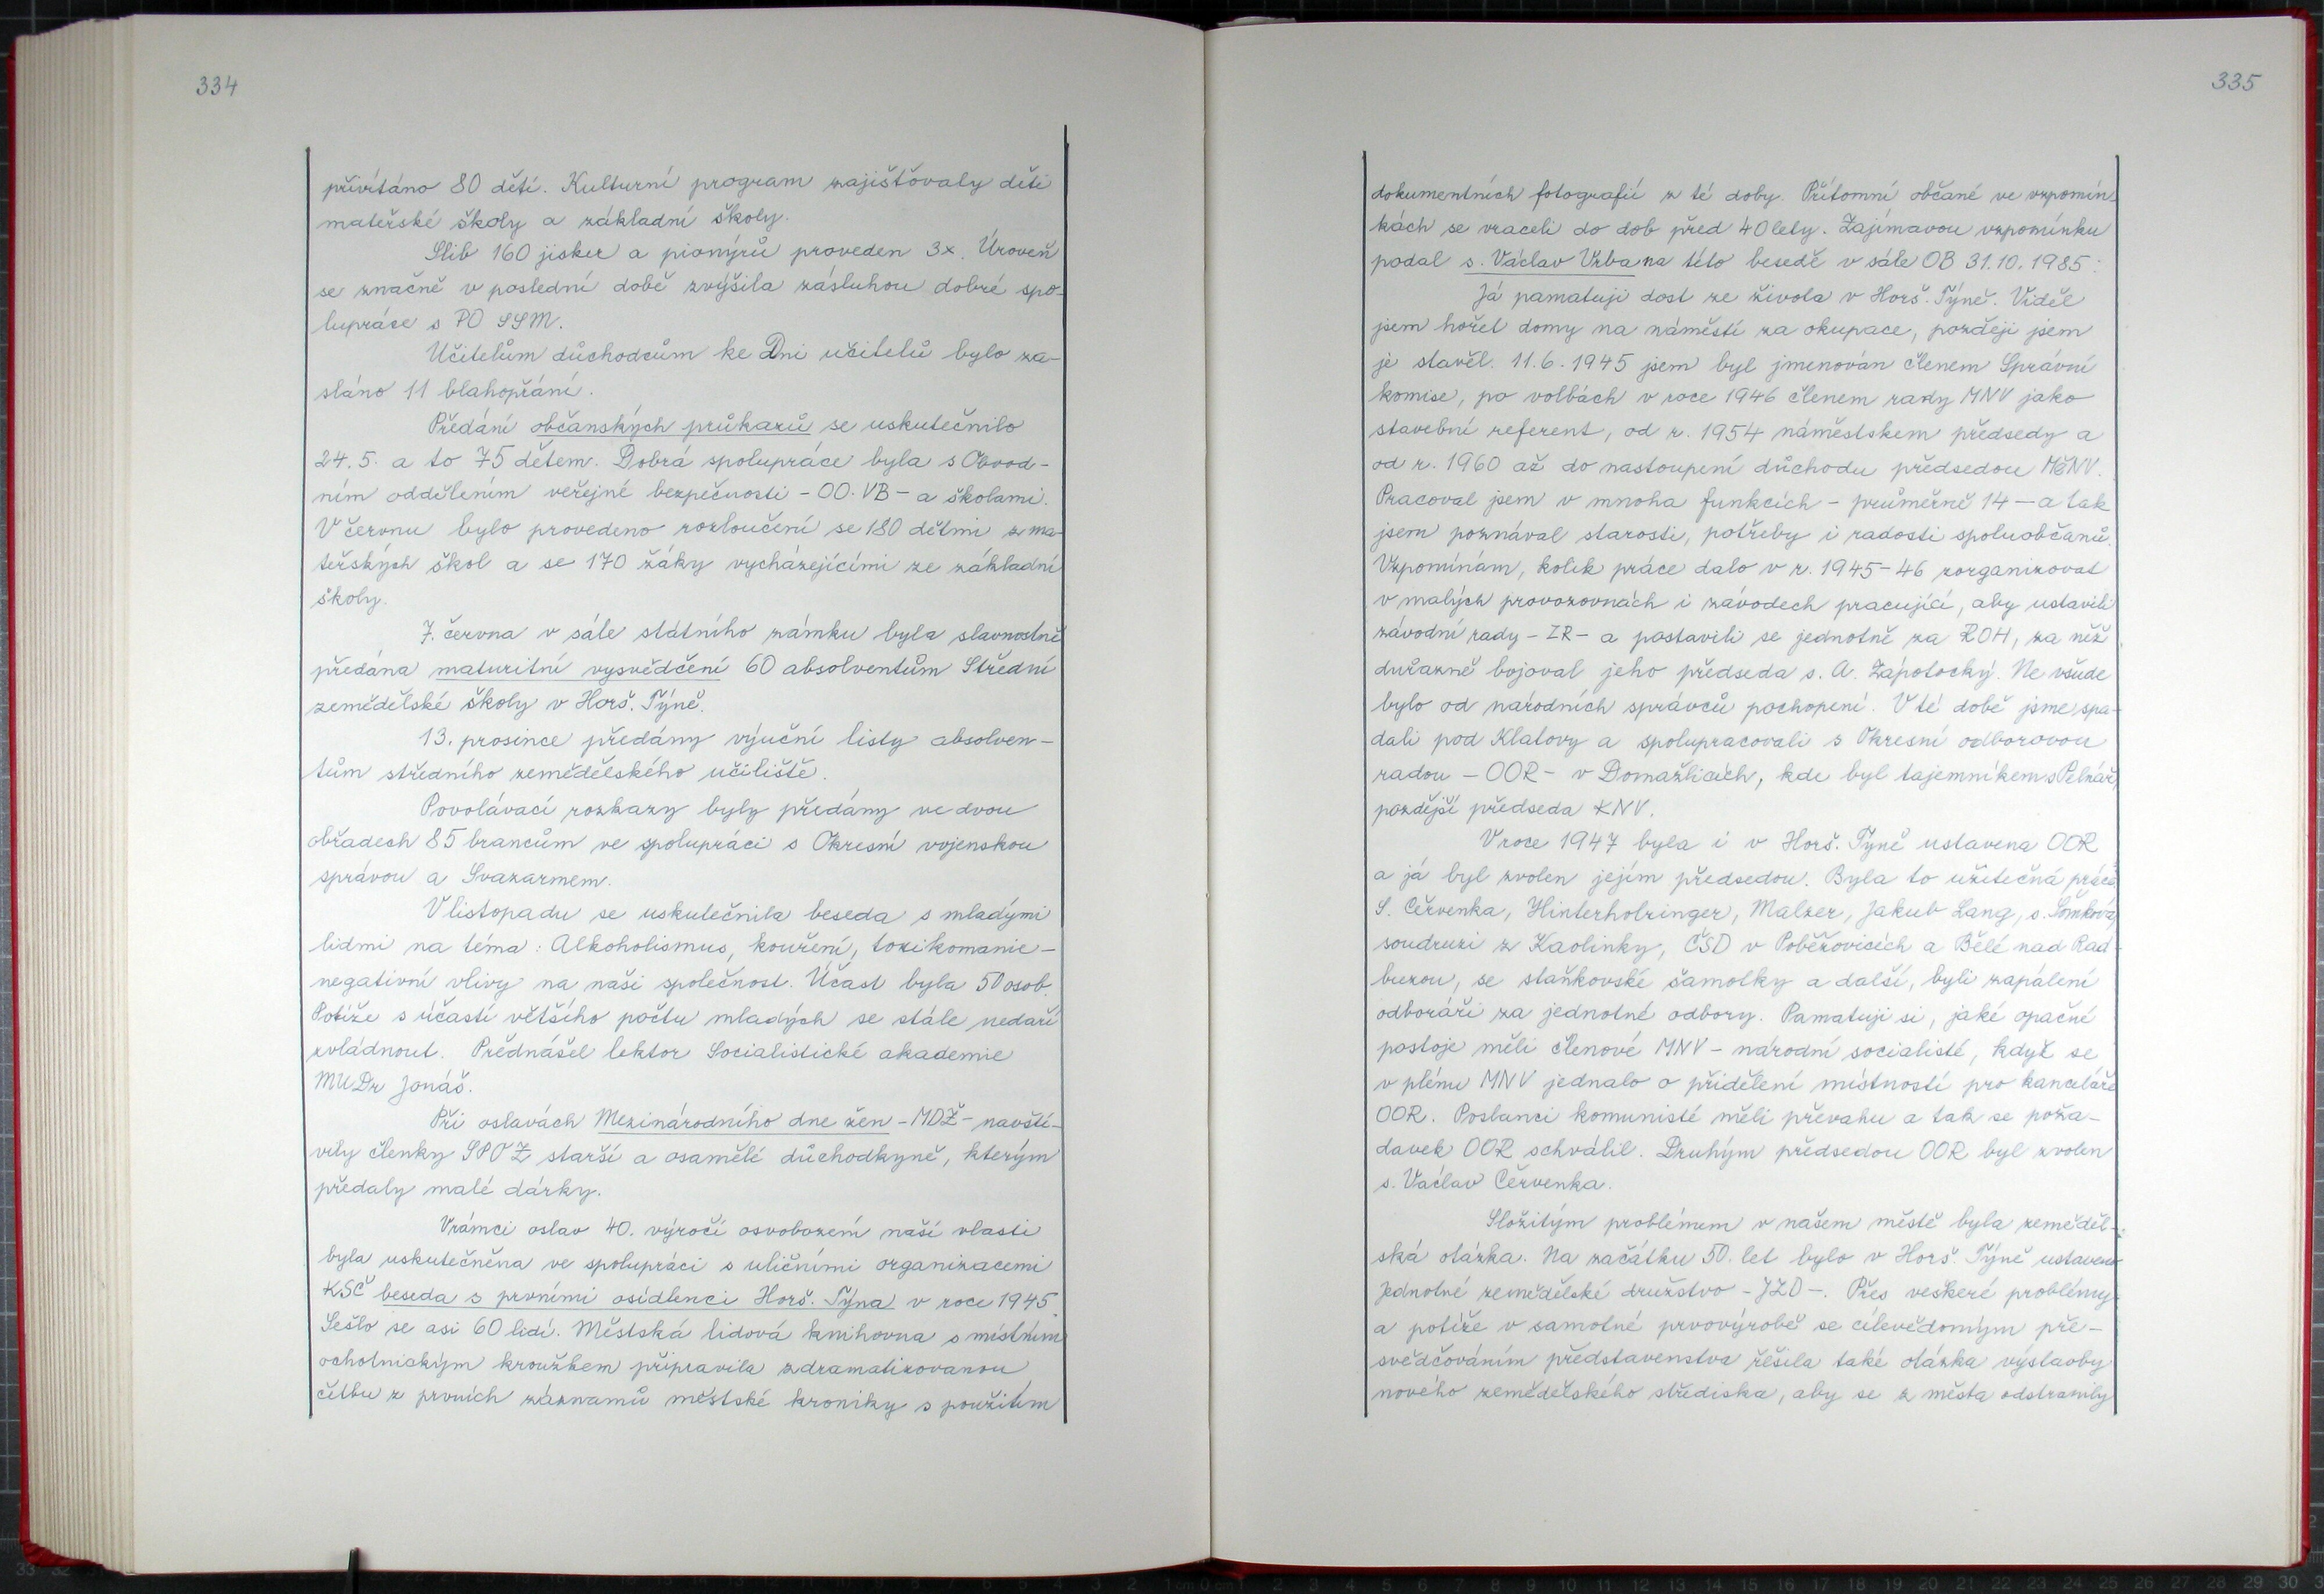 334
přivítáno 80 dětí. Kulturní program zajišťovaly děti
mateřské školy a základní školy.
Slib 160 jisker a pionýrů proveden 3x. Úroveň
se značně v poslední době zvýšila zásluhou dobré spo-
lupráce s PO SSM.
Učitelům důchodcům ke Dni učitelů bylo za-
sláno 11 blahopřání.
Předání občanských průkazů se uskutečnilo
24. 5. a to 75 dětem. Dobrá spolupráce byla s Obvod-
ním oddělením veřejné bezpečnosti - OO. VB - a školami.
V červnu bylo provedeno rozloučení se 180 dětmi z ma-
teřských škol a se 170 žáky vycházejícími ze základní
školy.
7. června v sále státního zámku byla slavnostně
předána maturitní vysvědčení 60 absolventům Střední
zemědělské školy v Horš. Týně.
13. prosince předány výuční listy absolven-
tům středního zemědělského učiliště.
Povolávací rozkazy byly předány ve dvou
obřadech 85 brancům ve spolupráci s Okresní vojenskou
správou a Svazarmem.
V listopadu se uskutečnila beseda s mladými
lidmi na téma: Alkoholismus, kouření, toxikomanie -
negativní vlivy na naši společnost. Účast byla 50 osob.
Potíže s účastí většího počtu mladých se stále nedaří
zvládnout. Přednášel lektor Socialistické akademie
MUDr Jonáš.
Při oslavách Mezinárodního dne žen - MDŽ - navští-
vily členky SPOZ starší a osamělé důchodkyně, kterým
předaly malé dárky.
V rámci oslav 40. výročí osvobození naší vlasti
byla uskutečněna ve spolupráci s uličními organizacemi
KSČ beseda s prvními osídlenci Horš. Týna v roce 1945.
Sešlo se asi 60 lidí. Městská lidová knihovna s místním
ochotnickým kroužkem připravila zdramatizovanou
četbu z prvních záznamů městské kroniky s použitím
335
dokumentních fotografií z té doby. Přítomní občané ve vzpomín-
kách se vraceli do dob před 40 lety. Zajímavou vzpomínku
podal s. Václav Vrba na této besedě v sále OB 31. 10. 1985:
Já pamatuji dost ze života v Horš. Týně. Viděl
jsem hořet domy na náměstí za okupace, později jsem
je stavěl. 11. 6. 1945 jsem byl jmenován členem Správní
komise, po volbách v roce 1946 členem rady MNV jako
stavební referent, od r. 1954 náměstskem předsedy a
od r. 1960 až do nastoupení důchodu předsedou MěNV.
Pracoval jsem v mnoha funkcích - průměrně 14 - a tak
jsem poznával starosti, potřeby i radosti spoluobčanů.
Vzpomínám, kolik práce dalo v r. 1945-46 zorganizovat
v malých provozovnách i závodech pracující, aby ustavili
závodní rady - ZR - a postavili se jednotně za ROH, za něž
důrazně bojoval jeho předseda s. A. Zápotocký. Ne všude
bylo od národních správců pochopení. V té době jsme spa-
dali pod Klatovy a spolupracovali s Okresní odborovou
radou - OOR - v Domažlicích, kde byl tajemníkem s Pelnář,
pozdější předseda KNV.
V roce 1947 byla i v Horš. Týně ustavena OOR
a já byl zvolen jejím předsedou. Byla to užitečná práce.
S. Červenka, Hinterholzinger, Malzer, Jakub Lang, s. Tomková,
soudruzi z Kaolinky, ČSD v Poběžovicích a Bělé nad Rad-
buzou, se staňkovské šamotky a další, byli zapálení
odboráři za jednotné odbory. Pamatuji si, jaké opačné
postoje měli členové MNV - národní socialisté, když se
v plénu MNV jednalo o přidělení místností pro kanceláře
OOR. Poslanci komunisté měli převahu a tak se poža-
davek OOR schválil. Druhým předsedou OOR byl zvolen
s. Václav Červenka.
Složitým problémem v našem městě byla zeměděl-
ská otázka. Na začátku 50. let bylo v Horš. Týně ustaveno
Jednotné zemědělské družstvo - JZD -. Přes veškeré problémy
a potíže v samotné prvovýrobě se cílevědomým pře-
svědčováním představenstva řešila také otázka výstavby
nového zemědělského střediska, aby se z města odstranily